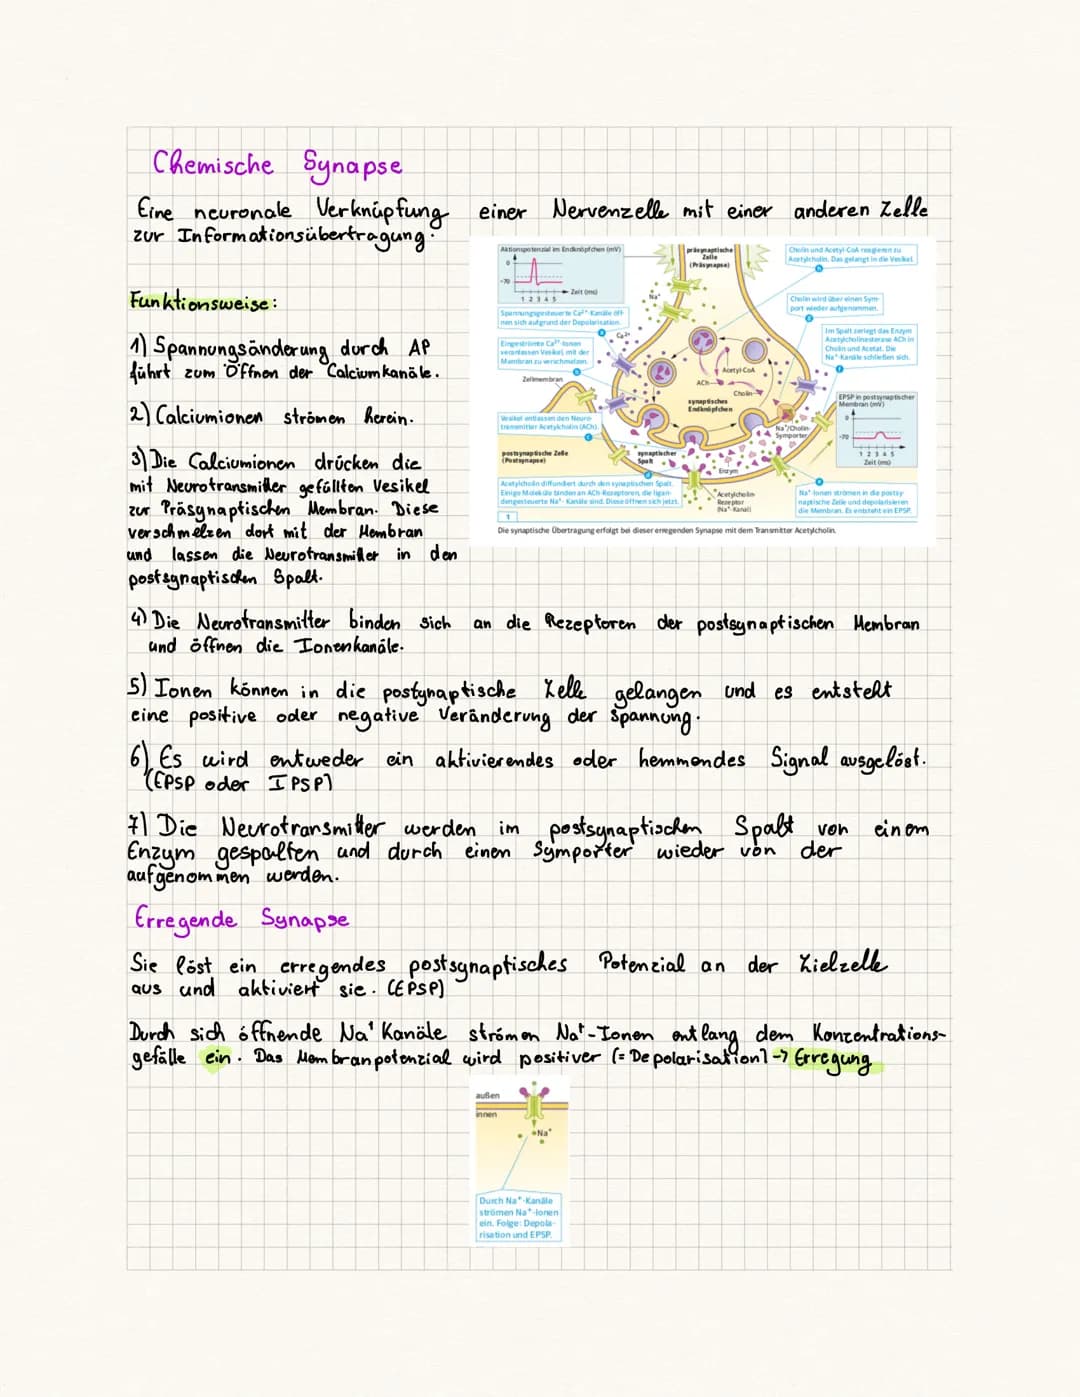 Chemische Synapse
Eine neuronale Verknüpfung einer Nervenzelle mit einer anderen Zelle
zur Informationsübertragung.
Aktionspotenzial im Endknöpfchen (mV)
0
-70
Zeit (ms)
1 2 3 4 5
Spannungsgesteuerte Ca²⁺-Kanäle öff-
nen sich aufgrund der Depolarisation.
a
Eingeströmte Ca²⁺-Ionen
veranlassen Vesikel, mit der
Membran zu verschmelzen.
b
Zellmembran
Vesikel entlassen den Neuro-
transmitter Acetylcholin (ACh).
c
postsynaptische Zelle
(Postsynapse)
Acetylcholin diffundiert durch den synaptischen Spalt.
Einige Moleküle binden an ACh-Rezeptoren, die ligan-
dengesteuerte Na⁺-Kanäle sind. Diese öffnen sich jetzt.
d
1
präsynaptische
Zelle
(Präsynapse)
Na⁺
Ca²⁺
Acetyl-CoA
ACh
Cholin
synaptisches
Endknöpfchen
synaptischer
Spalt
Enzym
Acetylcholin-
Rezeptor
(Na⁺-Kanal)
Na⁺/Cholin-
Symporter
Cholin und Acetyl-CoA reagieren zu
Acetylcholin. Das gelangt in die Vesikel.
h
Cholin wird über einen Sym-
port wieder aufgenommen.
g
Im Spalt zerlegt das Enzym
Acetylcholinesterase ACh in
Cholin und Acetat. Die
Na⁺-Kanäle schließen sich.
f
EPSP in postsynaptischer
Membran (mV)
0
-70
1 2 3 4 5
Zeit (ms)
e
Na⁺-Ionen strömen in die postsy-
naptische Zelle und depolarisieren
die Membran. Es entsteht ein EPSP.
Die synaptische Übertragung erfolgt bei dieser erregenden Synapse mit dem Transmitter Acetylcholin.
Funktionsweise:
1) Spannungsänderung durch AP
führt zum Öffnen der Calciumkanäle.
2) Calciumionen strömen herein.
3) Die Calciumionen drücken die
mit Neurotransmitter gefüllten Vesikel
zur Präsynaptischen Membran. Diese
verschmelzen dort mit der Membran
und lassen die Neurotransmitter in den
postsynaptischen Spalt.
4) Die Neurotransmitter binden sich an die Rezeptoren der postsynaptischen Membran
und öffnen die Ionenkanäle.
5) Ionen können in die postynaptische Zelle gelangen und es entsteht
eine positive oder negative Veränderung der Spannung.
6) Es wird entweder ein aktivierendes oder hemmendes Signal ausgelöst.
(EPSP oder IPSP)
7) Die Neurotransmitter werden im postsynaptischen Spalt von einem
Enzym gespalten und durch einen Symporter wieder von der
aufgenommen werden.
Erregende Synapse
Sie löst ein erregendes postsynaptisches Potenzial an der Zielzelle
aus und aktiviert sie. (EPSP)
Durch sich öffnende Na⁺ Kanäle strömen Na⁺-Ionen entlang dem Konzentrations-
gefälle ein. Das Membranpotenzial wird positiver (= Depolarisation) -> Erregung
außen
innen
Na⁺
Durch Na⁺-Kanäle
strömen Na⁺-Ionen
ein. Folge: Depola-
risation und EPSP.